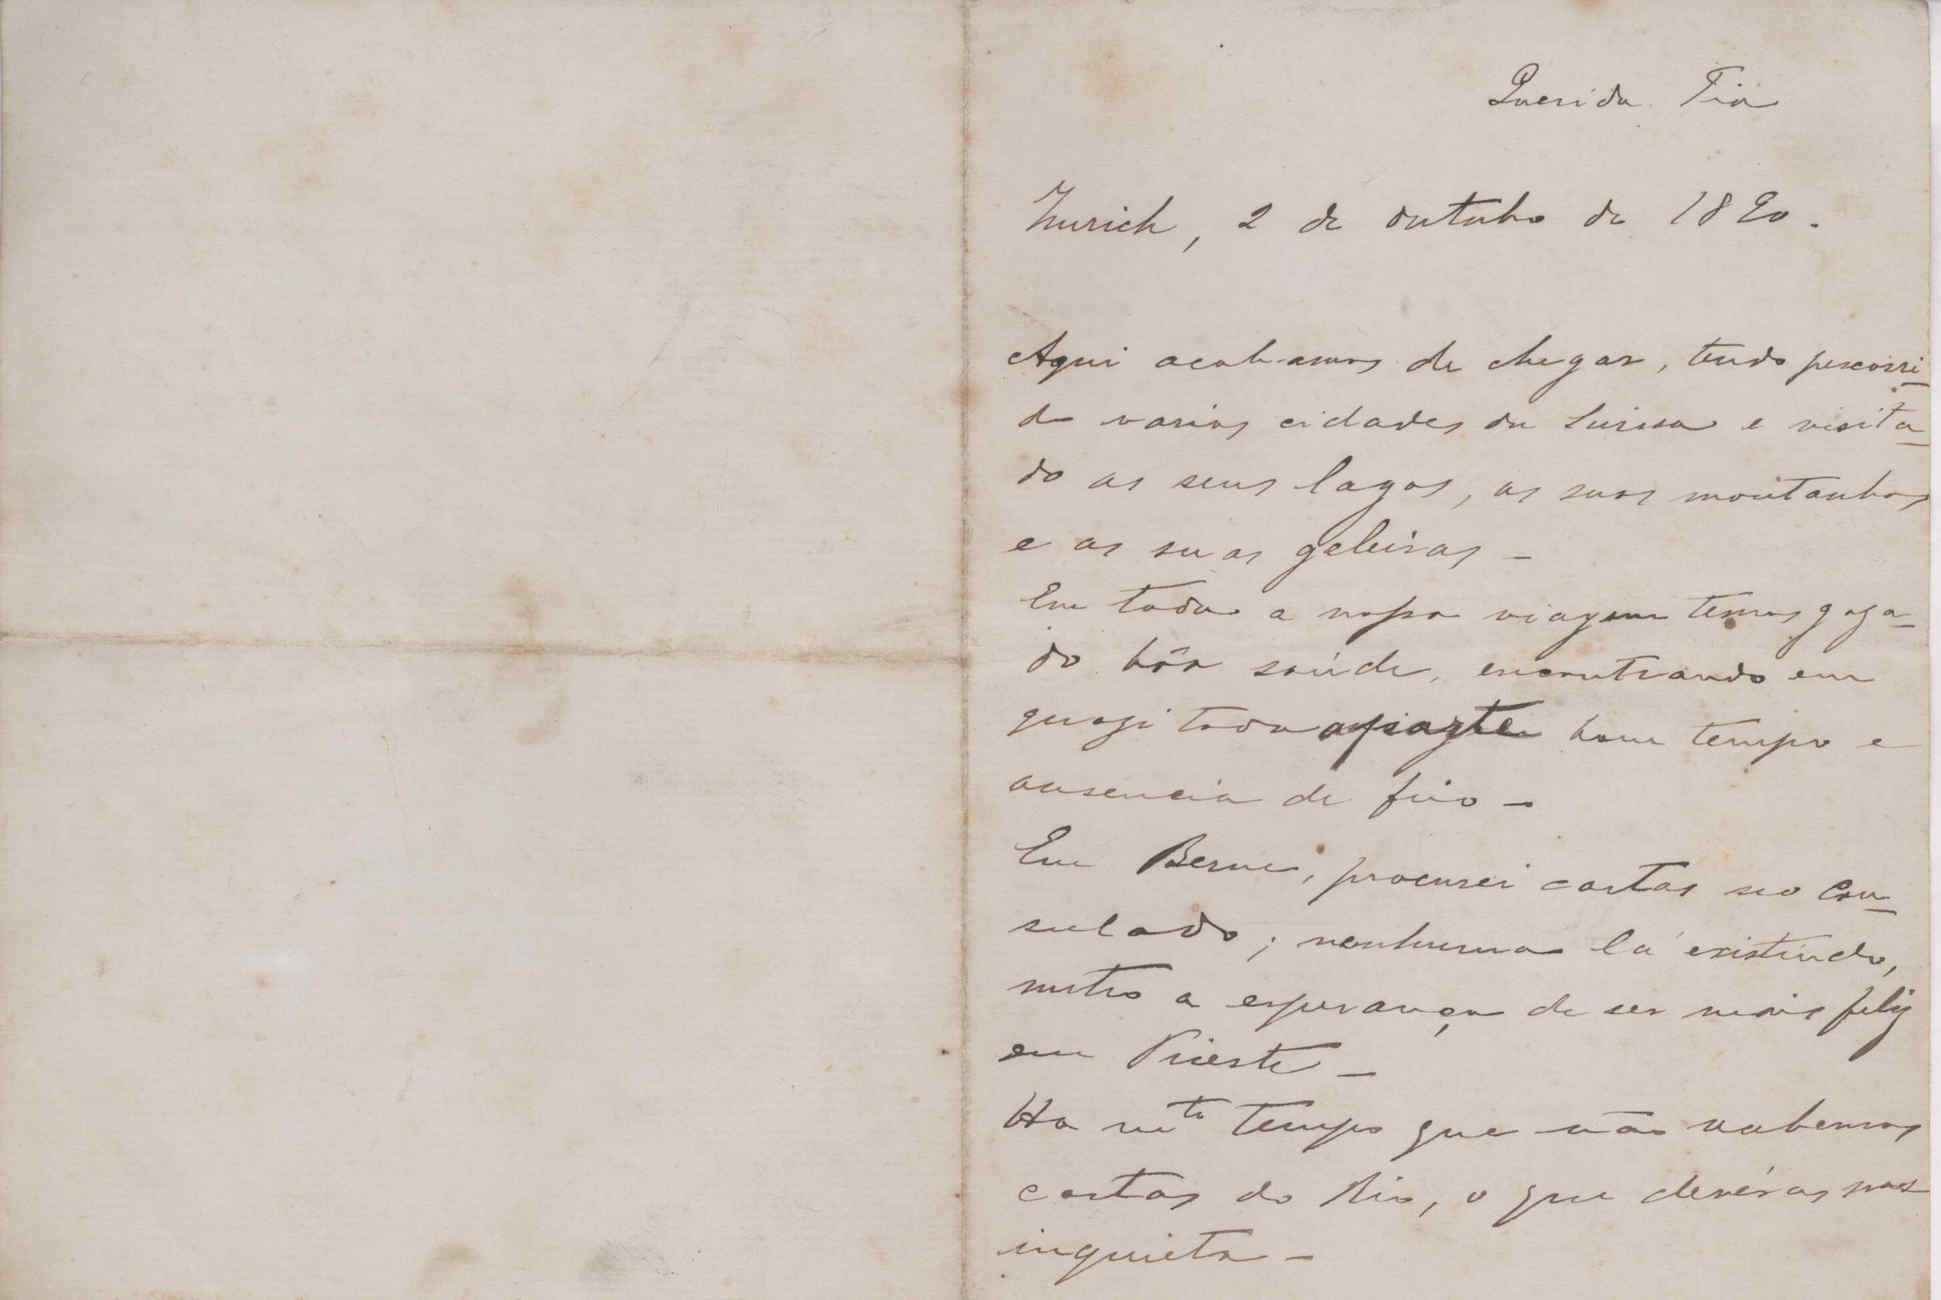 Querida Tia
Zurich, 2 de outubro de 1890.
Aqui acabamos de chegar, tendo percorri-
do varias cidades da Suissa e visita-
do os seus lagos, as suas montanhas
e as suas geleiras -
Em toda a nossa viagem temos goza-
do bôa saúde, encontrando em
quazi toda a parte bom tempo e
ausencia de frio -
Em Berne, procurei cartas no Con-
sulado; nenhuma lá existindo,
nutro a esperança de ser mais feliz
em Trieste -
Ha mto tempo que não recebemos
cartas do Rio, o que devéras nos
inquieta -